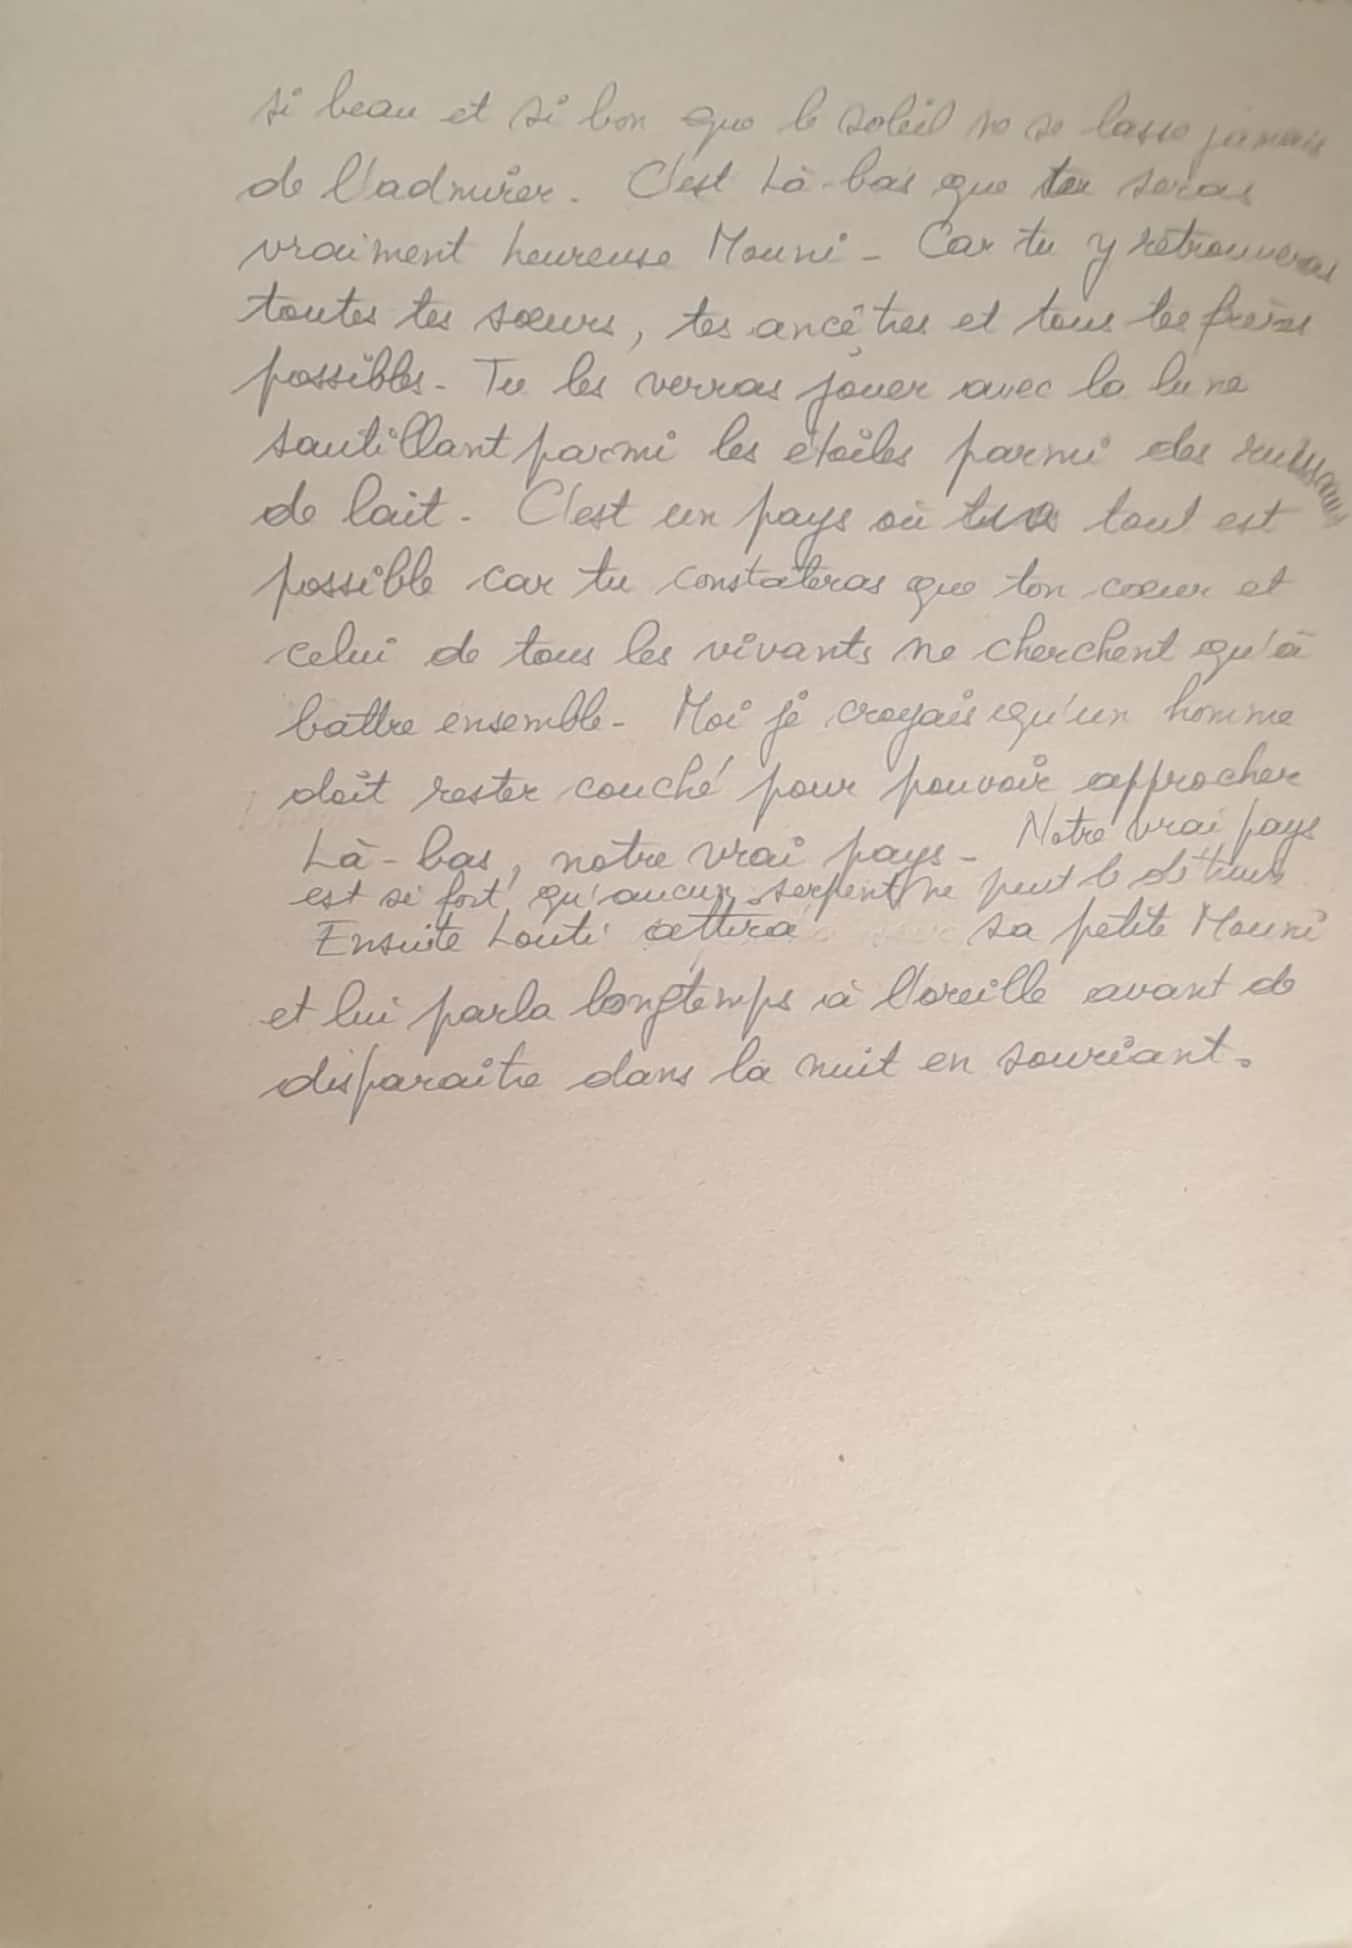 si beau et si bon que le soleil ne se lasse jamais
de l'admirer. C'est Là-bas que tu seras
vraiment heureuse Mouni - Car tu y retrouveras
toutes tes sœurs, tes ancêtres et tous les frères
possibles - Tu les verras jouer avec la lune
sautillant parmi les étoiles parmi des ruisseaux
de lait - C'est un pays où tout est
possible car tu constateras que ton cœur et
celui de tous les vivants ne cherchent qu'à
battre ensemble - Moi je croyais qu'un homme
doit rester couché pour pouvoir approcher
Là-bas, notre vrai pays - Notre vrai pays
est si fort qu'aucun serpent ne peut le détruire
Ensuite Louti attira sa petite Mouni
et lui parla longtemps à l'oreille avant de
disparaître dans la nuit en souriant.